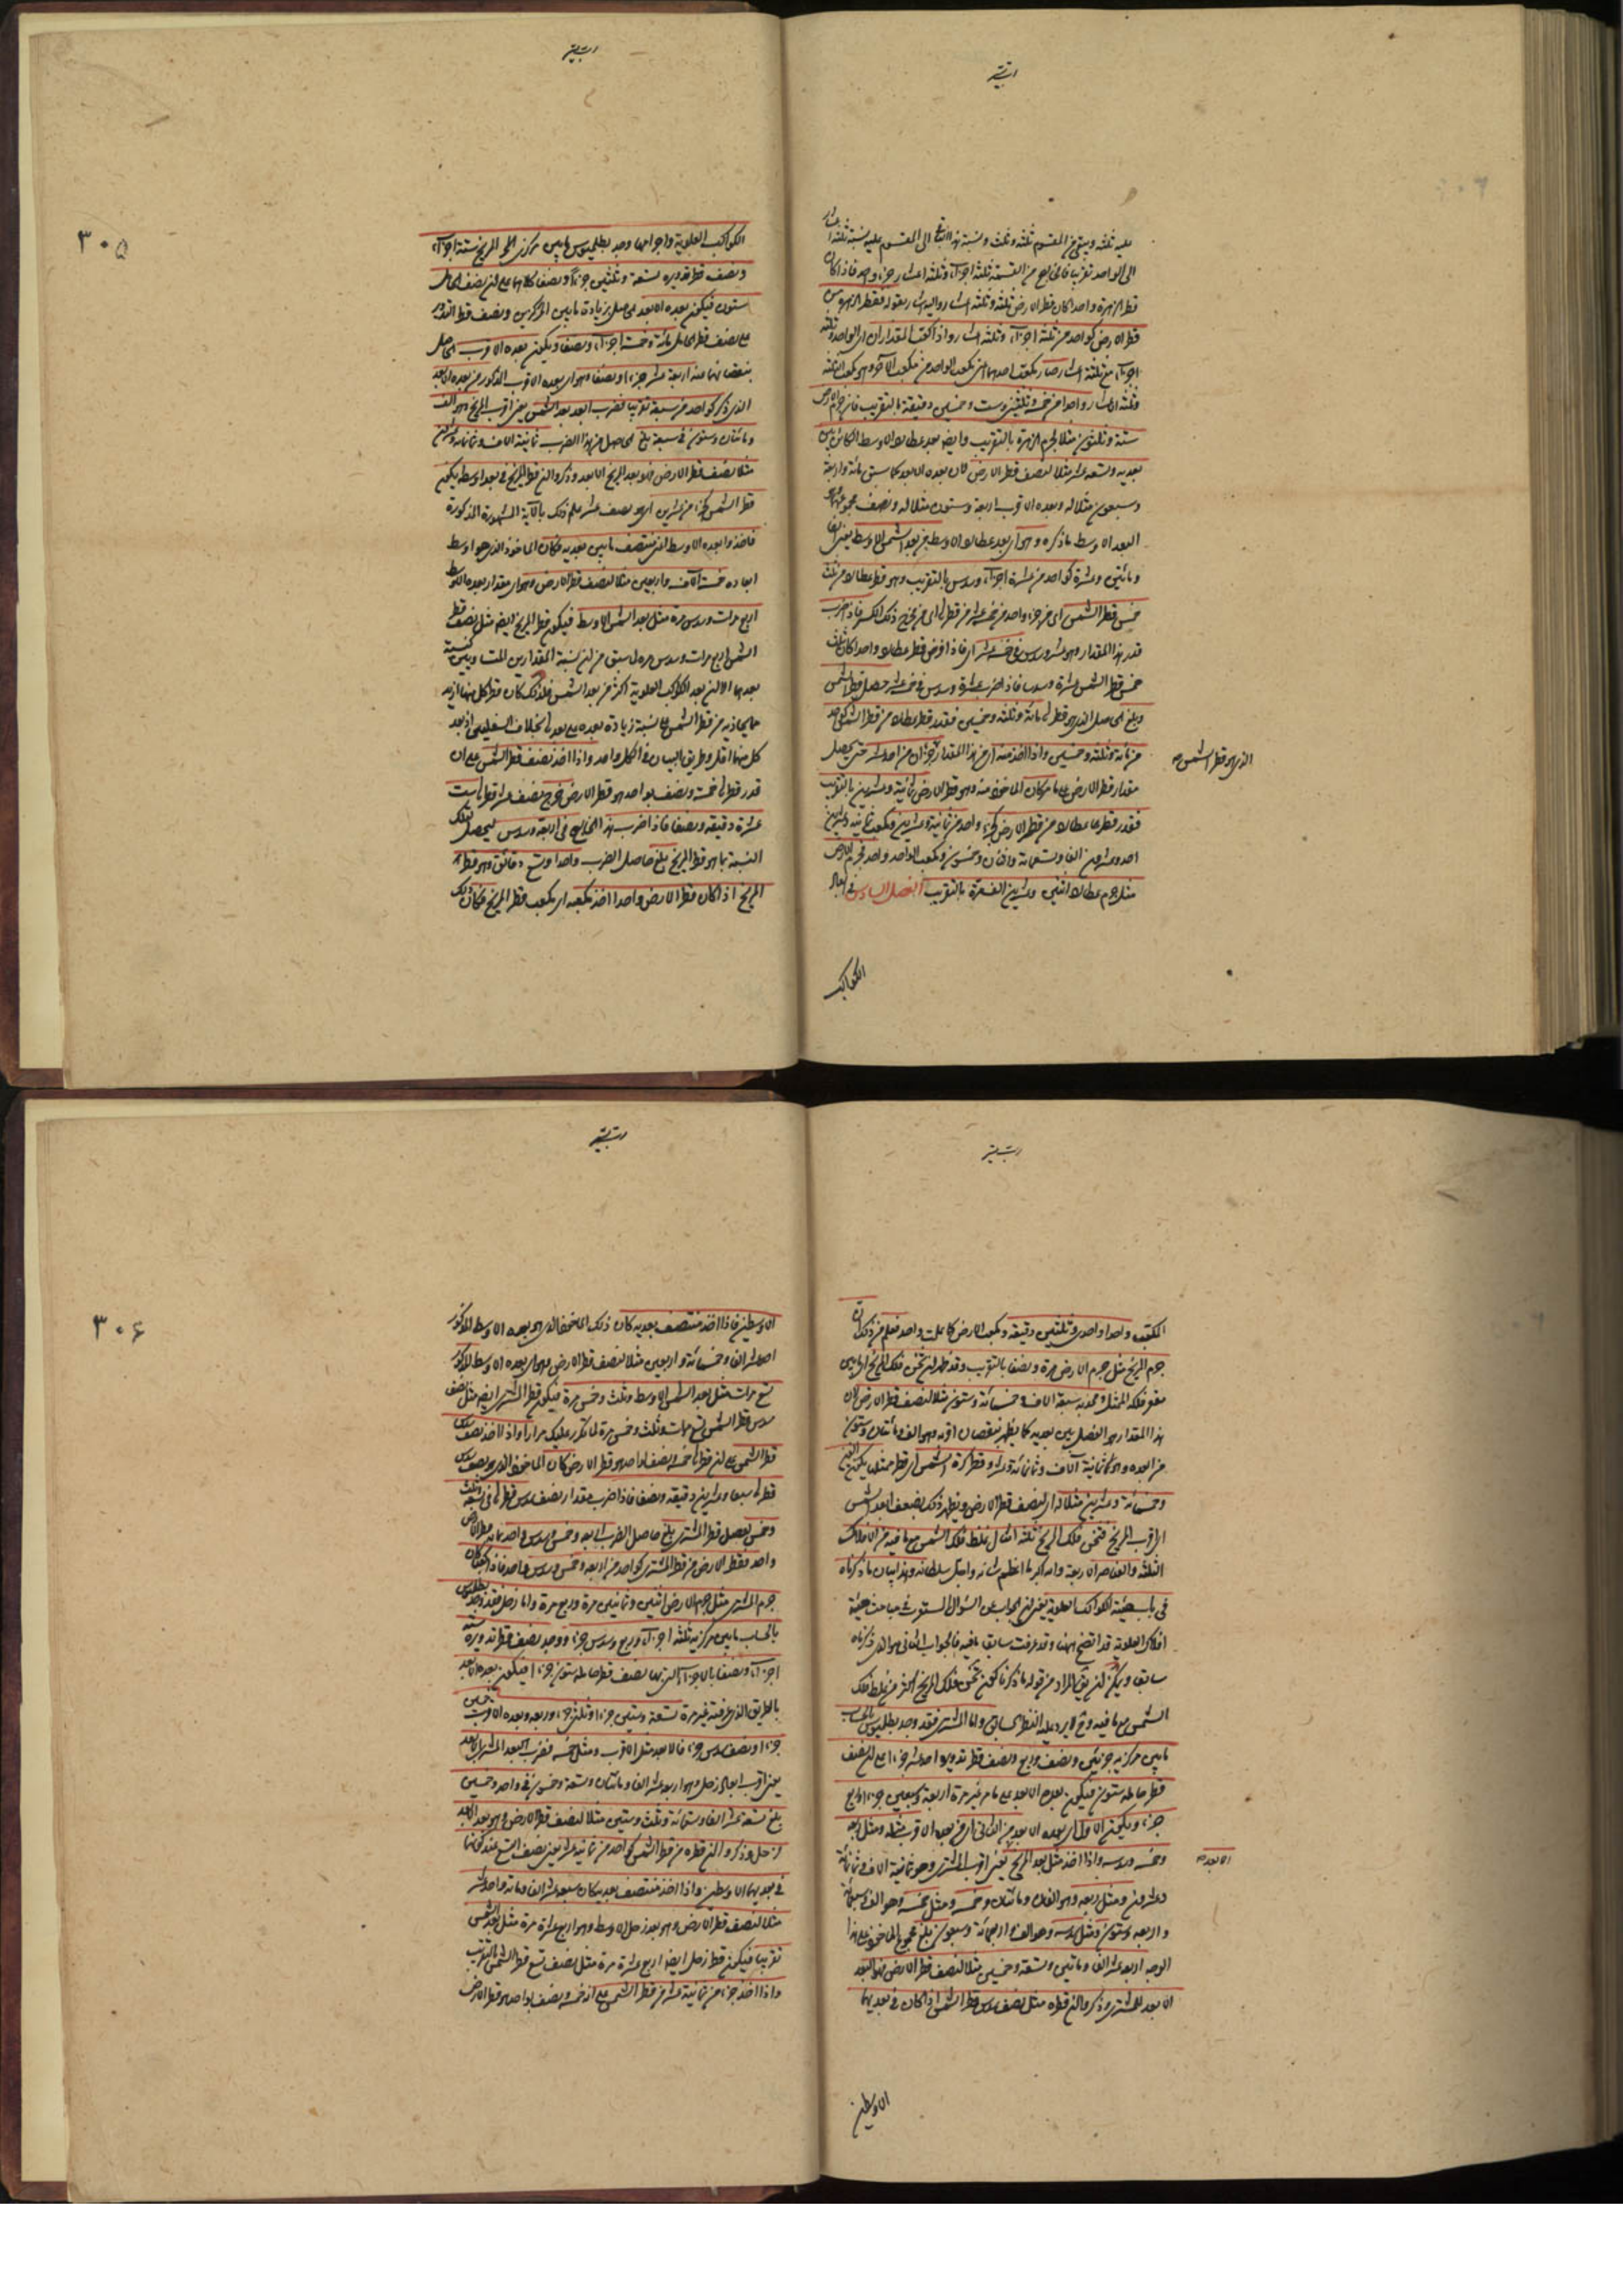 عليه ثلثة ويبقى من المقسوم ثلثة وثلث ونسبة هذا الباقي الى المقسوم عليه نسبة ثلثة اعشار
الى الواحد تقريبا فالخارج من القسمة ثلثة اجزاء وثلثة اعشار جزء واحد فاذا كان
قطر الزهرة واحدا كان قطر الارض ثلثة وثلثة اعشار واليه اشار بقوله فقطر الزهرة من
قطر الارض كواحد من ثلثة اجزاء وثلثة اعشار واذا كعبت المقداران اى الواحد وثلثة
اجزاء مع ثلثة اعشار صار مكعب احدهما اعنى مكعب الواحد من مكعب الآخر وهو مكعب الثلثة
وثلثة اعشار واحدا من خمسة وثلثين وست وخمسين دقيقة بالتقريب فاذن جرم الارض
ستة وثلثون مثلا لجرم الزهرة بالتقريب وايضا بعد عطارد الاوسط الكائن بين
بعديه وتسعة عشر مثلا لنصف قطر الارض لان بعده الابعد كما سبق مائة واربعة
وسبعون مثلا له وبعده الاقرب اربعة وستون مثلا له ونصف مجموعهما هو
البعد الاوسط ما ذكره وهو اى بعد عطارد الاوسط من بعد الشمس الاوسط يعنى الفا
ومائتين وعشرة كواحد من عشرة اجزاء وسدس بالتقريب وهو قطر عطارد من ثلث
خمس قطر الشمس اى من جزء واحد من خمسة عشر من قطرها اى من مخرج ذلك الكسر فاذا ضرب
قدر هذا المقدار وهو عشر وسدس فى خمسة عشر اى فاذا فرض قطر عطارد واحدا كان ثلث
خمس قطر الشمس عشرة وسدسا فاذا ضرب عشرة وسدس فى خمسة عشر حصل قطر الشمس
وبلغ الحاصل الذى هو قطرها مائة وثلثة وخمسين فقدر قطر عطارد من قطر الشمس كواحد
من مائة وثلثة وخمسين واذا اخذ منه اى من هذا المقدار جزءان من احد عشر حتى يحصل
الذى هو قطر الشمس صح
مقدار قطر الارض على ما مر كان الماخوذ منه وهو قطر الارض ثمانية وعشرين بالتقريب
فقدر قطر عطارد من قطر الارض كجزء واحد من ثمانية وعشرين ومكعب ثمانية وعشرين
احد وعشرون الفا وتسعمائة واثنان وخمسون ومكعب الواحد واحد فجرم الارض
مثل جرم عطارد اثنين وعشرين الف مرة بالتقريب الفصل السادس فى ابعاد
الكواكب
٣٠٥
الكواكب العلوية واجرامها وجد بطلميوس ما بين مركزى المريخ ستة اجزاء
ونصف قطر تدويره تسعة وثلثين جزءا ونصفا كلاهما على ان نصف الحامل
ستون فيكون بعده الابعد الحاصل بزيادة ما بين المركزين ونصف قطر التدوير
على نصف قطر الحامل مائة وخمسة اجزاء ونصفا ويكون بعده الاقرب الحاصل
بنقصانهما منه اربعة عشر جزءا ونصفا وهو اى بعده الاقرب المذكور من بعده الابعد
الذى ذكر كواحد من سبعة تقريبا فضرب البعد بعد الشمس يعنى اقرب المريخ وهو الف
ومائتان وستون فى سبعة بلغ الحاصل من هذا الضرب ثمانية الاف وثمانمائة وعشرين
مثلا لنصف قطر الارض فهو بعد المريخ الابعد وذكروا ان قطر المريخ فى بعده الاوسط يكون
قطر الشمس كجزء من عشرين اى هو نصف عشر علم ذلك بالآلة المشهورة المذكورة
فاخذوا بعده الاوسط اى منتصف ما بين بعديه فكان الماخوذ الذى هو اوسط
ابعاده خمسة آلاف واربعين مثلا لنصف قطر الارض وهو اى مقدار بعده الاوسط
اربع مرات وسدس مرة مثل بعد الشمس الاوسط فيكون قطر المريخ ايضا مثل نصف عشر قطر
الشمس اربع مرات وسدس مرة لما سبق من ان نسبة المقدارين كنسبة
بعديهما الا ان بعد الكواكب العلوية اكثر من بعد الشمس فلذلك كان قطر كل منها ازيد
مما يحاذيه من قطر الشمس على نسبة زيادة بعده على بعدها بخلاف السفليين اذ بعد
كل منهما اقل وطريق البيان فى الكل واحد واذا اخذ نصف قطر الشمس على ان
قدر قطرها خمسة ونصف بواحد هو قطر الارض خرج نصف عشر قطرها ست
عشرة دقيقة ونصفا فاذا ضرب هذا الخارج فى اربعة وسدس ليحصل بتلك
النسبة ما هو قطر المريخ بلغ حاصل الضرب واحدا وتسع دقائق وهو قطر
المريخ اذا كان قطر الارض واحدا اخذ مكعبه اى مكعب قطر المريخ فكان ذلك
المكعب واحدا واحدى وثلثين دقيقة ومكعب الارض كما علمت واحد فعلم من ذلك ان
جرم المريخ مثل جرم الارض مرة ونصفا بالتقريب وقد ظهر ان ثخن فلك المريخ اى ما بين
مقعر فلكه الممثل ومحدبه سبعة الاف وخمسمائة وستون مثلا لنصف قطر الارض لان
هذا المقدار هو الفضل بين بعديه كما يظهر بنقصان اقربه وهو الف ومائتان وستون
من ابعده وهو ثمانية آلاف وثمانمائة وعشرون وقطر كرة الشمس اى قطر ممثلها يكون الفين
وخمسمائة وعشرين مثلا له اى لنصف قطر الارض ويظهر ذلك بضعف ابعد الشمس
اى اقرب المريخ فثخن فلك المريخ ثلثة امثال غلظ فلك الشمس مع ما فيه من الافلاك
الثلثة والعناصر الاربعة والله اكبر ما اعظم شانه واجل سلطانه وهذا بيان ما ذكرناه
فى باب هيئة الكواكب العلوية يعنى ان الجواب عن السؤال المستور فى مباحث هيئة
افلاك العلوية قد اتضح ههنا وقد عرفت سابق ما فيه فالجواب الثانى هو الذى ذكرناه
سابقا ويمكن ان يق المراد من قوله ما ذكرنا كون ثخن فلك المريخ اكثر من غلظ فلك
الشمس مع ما فيه وح لا يرد عليه النظر السابق واما المشترى فقد وجد بطلميوس بالحساب
ما بين مركزيه جزئين ونصف وربع ونصف قطر تدويره احد عشر جزءا على ان نصف
قطر حامله ستون فيكون بعده الابعد على ما مر غير مرة اربعة وسبعين جزءا وربع
جزء ويكون الاول اى بعده الابعد من الثانى اى من بعده الاقرب مثله ومثل ربعه
وخمسه وسدسه واذا اخذ مثل بعد المريخ يعنى اقرب المشترى وهو ثمانية الاف وثمانمائة
الابعد صح
وعشرون ومثل ربعه وهو الفان ومائتان وخمسة ومثل خمسه وهو الف وسبعمائة
واربعة وستون ومثل سدسه وهو الف واربعمائة وسبعون بلغ مجموع الماخوذ على هذا
الوجه اربعة عشر الفا ومائتين وتسعة وخمسين مثلا لنصف قطر الارض فهو البعد
الابعد للمشترى وذكروا ان قطره مثل نصف سدس قطر الشمس اذا كان فى بعديهما
الاوسطين
٣٠٦
الاوسطين فاذا اخذ منتصف بعديه كان ذلك الماخوذ الذى هو بعده الاوسط المذكور
احد عشر الفا وخمسمائة واربعين مثلا لنصف قطر الارض وهو اى بعده الاوسط المذكور
تسع مرات مثل بعد الشمس الاوسط وثلث وخمس مرة فيكون قطر المشترى ايضا مثل نصف
سدس قطر الشمس تسع مرات وثلث وخمس مرة لما تكرر عليك مرارا واذا اخذ نصف سدس
قطر الشمس على ان قطرها خمسة ونصف لواحد هو قطر الارض كان الماخوذ الذى هو نصف سدس
قطرها سبعا وعشرين دقيقة ونصفا فاذا ضرب مقدار نصف سدس قطرها فى تسعة وثلث
وخمس ليحصل قطر المشترى بلغ حاصل الضرب اربعة وخمس وسدس واحد بما به قطر الارض
واحد فقطر الارض من قطر المشترى كواحد من اربعة وخمس وسدس واحد فاذا كعبا كان
جرم المشترى مثل جرم الارض اثنين وثمانين مرة وربع مرة واما زحل فقد وجد بطلميوس
بالحساب ما بين مركزيه ثلثة اجزاء وربع وسدس جزء ووجد نصف قطر تدويره ستة
اجزاء ونصفا بالاجزاء التى بها نصف قطر حامله ستون جزءا فيكون بعده الابعد
بالطريق الذى عرفته غير مرة تسعة وستين جزءا وثلثى جزء وربعه وبعده الاقرب خمسين
جزءا ونصف سدس جزء فالابعد مثل الاقرب ومثل خمسه فضرب البعد المشترى الابعد
يعنى اقرب ابعاد زحل وهو اربعة عشر الفا ومائتان وتسعة وخمسون فى واحد وخمسين
بلغ تسعة عشر الفا وستمائة وثلث وستين مثلا لنصف قطر الارض وهو بعد الابعد
لزحل وذكروا ان قطره من قطر الشمس كواحد من ثمانية عشر يعنى نصف التسع عند كونهما
فى بعديهما الاوسطين واذا اخذ منتصف بعديه كان سبعة عشر الفا ومائة واحد عشر
مثلا لنصف قطر الارض وهو بعد زحل الاوسط وهو اربع عشرة مرة مثل بعد الشمس
تقريبا فيكون قطر زحل ايضا اربع عشرة مرة مثل نصف تسع قطر الشمس بالتقريب
واذا اخذ جزء من ثمانية عشر من قطر الشمس على انه خمسة ونصف بواحد هو قطر الارض